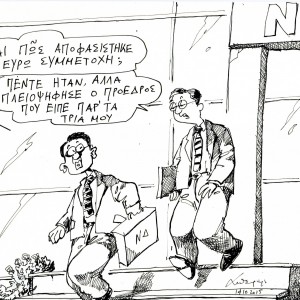 ΑΙ ΠΩΣ ΑΠΟΦΑΣΙΣΤΗΚΕ
ΕΥΡΩ ΣΥΜΜΕΤΟΧΗ;
ΠΕΝΤΕ ΗΤΑΝ, ΑΛΛΑ
ΠΛΕΙΟΨΗΦΗΣΕ Ο ΠΡΟΕΔΡΟΣ
ΠΟΥ ΕΙΠΕ ΠΑΡ'ΤΑ
ΤΡΙΑ ΜΟΥ
Ν
ΝΔ